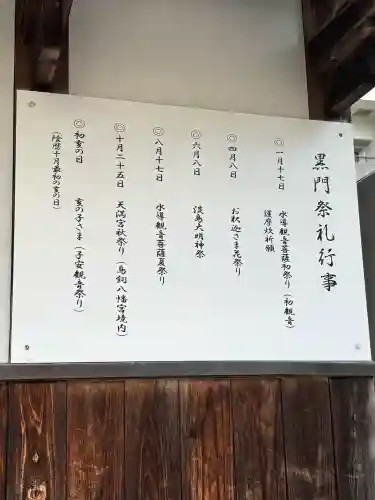 黒門祭礼行事
◎一月十七日 水導観音菩薩初祭り(初観音)
護摩炊祈願
◎四月八日 お釈迦さま花祭り
◎六月八日 淡島大明神祭
◎八月十七日 水導観音菩薩夏祭り
◎十月二十五日 天満宮秋祭り(鳥飼八幡宮境内)
◎初亥の日 亥の子さま(子安観音祭り)
(陰暦十月最初の亥の日)